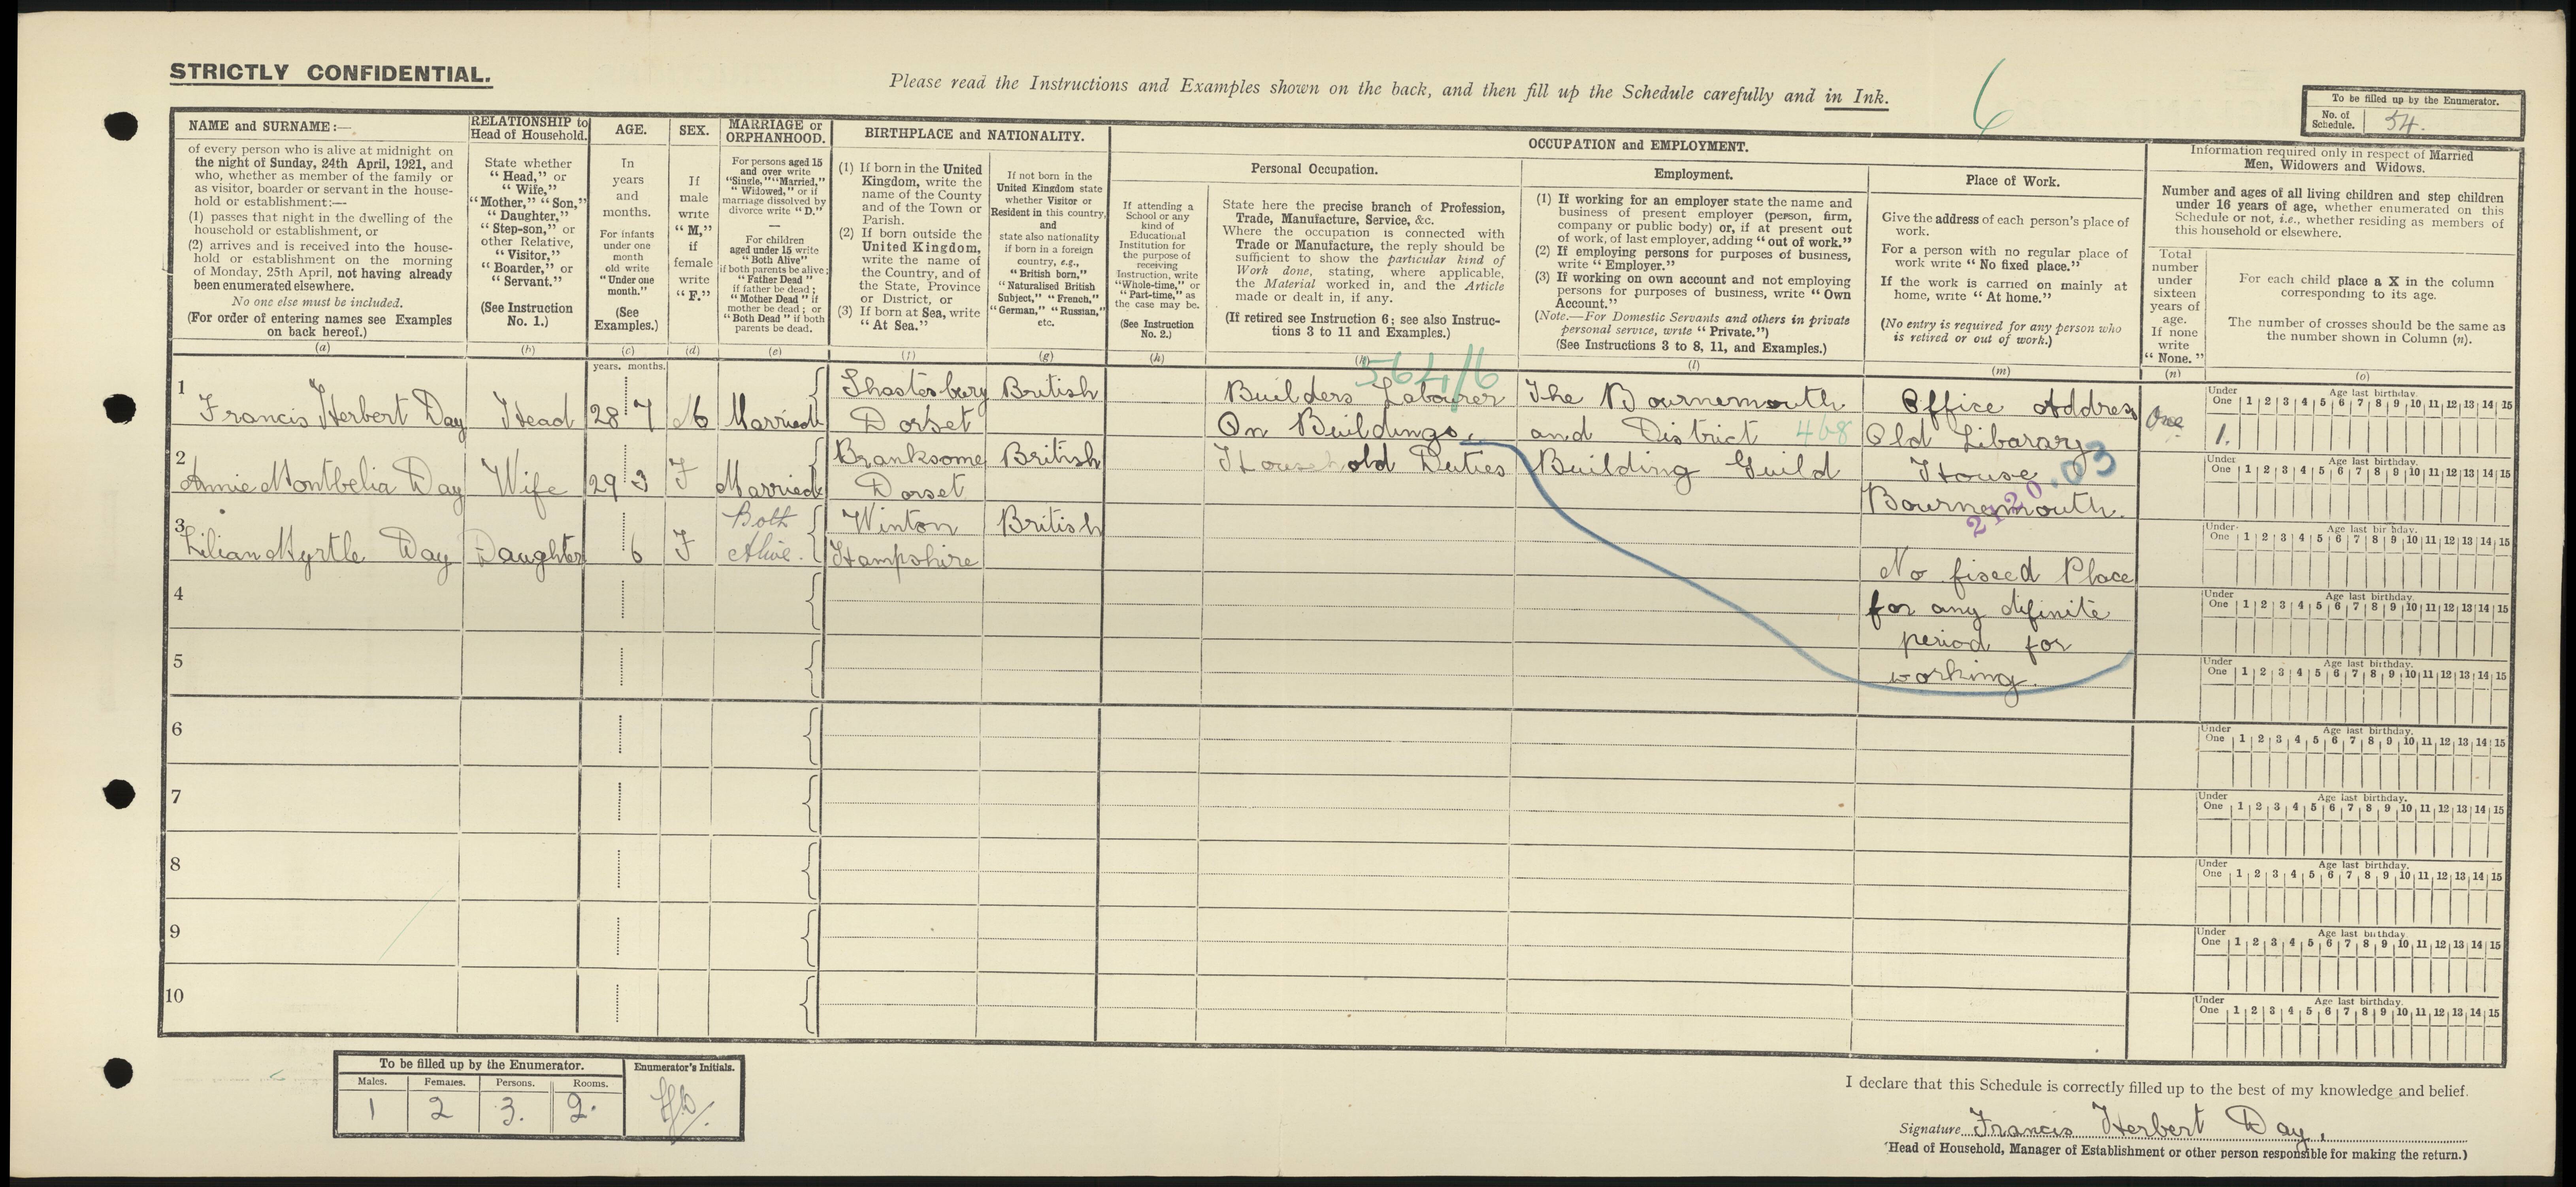 STRICTLY CONFIDENTIAL.
Please read the Instructions and Examples shown on the back, and then fill up the Schedule carefully and in Ink.
6
To be filled up by the Enumerator.
No. of Schedule. 54.
NAME and SURNAME:—
of every person who is alive at midnight on
the night of Sunday, 24th April, 1921, and
who, whether as member of the family or
as visitor, boarder or servant in the house-
hold or establishment:—
(1) passes that night in the dwelling of the
household or establishment, or
(2) arrives and is received into the house-
hold or establishment on the morning
of Monday, 25th April, not having already
been enumerated elsewhere.
No one else must be included.
(For order of entering names see Examples
on back hereof.)
(a)
RELATIONSHIP to
Head of Household.
State whether
"Head," or
"Wife,"
"Mother," "Son,"
"Daughter,"
"Step-son," or
other Relative,
"Visitor,"
"Boarder," or
"Servant."
(See Instruction
No. 1.)
(b)
AGE.
In
years
and
months.
For infants
under one
month
old write
"Under one
month."
(See
Examples.)
(c)
SEX.
If
male
write
"M,"
if
female
write
"F."
(d)
MARRIAGE or
ORPHANHOOD.
For persons aged 15
and over write
"Single," "Married,"
"Widowed," or if
marriage dissolved by
divorce write "D."
—
For children
aged under 15 write
"Both Alive"
if both parents be alive;
"Father Dead"
if father be dead;
"Mother Dead" if
mother be dead; or
"Both Dead" if both
parents be dead.
(e)
BIRTHPLACE and NATIONALITY.
(1) If born in the United
Kingdom, write the
name of the County
and of the Town or
Parish.
(2) If born outside the
United Kingdom,
write the name of
the Country, and of
the State, Province
or District, or
(3) If born at Sea, write
"At Sea."
(f)
If not born in the
United Kingdom state
whether Visitor or
Resident in this country,
and
state also nationality
if born in a foreign
country, e.g.,
"British born,"
"Naturalised British
Subject," "French,"
"German," "Russian,"
etc.
(g)
OCCUPATION and EMPLOYMENT.
Personal Occupation.
If attending a
School or any
kind of
Educational
Institution for
the purpose of
receiving
Instruction, write
"Whole-time," or
"Part-time," as
the case may be.
(See Instruction
No. 2.)
(h)
State here the precise branch of Profession,
Trade, Manufacture, Service, &c.
Where the occupation is connected with
Trade or Manufacture, the reply should be
sufficient to show the particular kind of
Work done, stating, where applicable,
the Material worked in, and the Article
made or dealt in, if any.
(If retired see Instruction 6; see also Instruc-
tions 3 to 11 and Examples.)
Employment.
(1) If working for an employer state the name and
business of present employer (person, firm,
company or public body) or, if at present out
of work, of last employer, adding "out of work."
(2) If employing persons for purposes of business,
write "Employer."
(3) If working on own account and not employing
persons for purposes of business, write "Own
Account."
(Note.—For Domestic Servants and others in private
personal service, write "Private.")
(See Instructions 3 to 8, 11, and Examples.)
(l)
Place of Work.
Give the address of each person's place of
work.
For a person with no regular place of
work write "No fixed place."
If the work is carried on mainly at
home, write "At home."
(No entry is required for any person who
is retired or out of work.)
(m)
Information required only in respect of Married
Men, Widowers and Widows.
Number and ages of all living children and step children
under 16 years of age, whether enumerated on this
Schedule or not, i.e., whether residing as members of
this household or elsewhere.
Total
number
under
sixteen
years of
age.
If none
write
"None."
(n)
For each child place a X in the column
corresponding to its age.
The number of crosses should be the same as
the number shown in Column (n).
(o)
years. months.
1 Francis Herbert Day Head 28 7 M Married Shastesbery Dorset British
564/6
Builders Labourer
On Buildings.
The Bournemouth
and District 468
Building Guild
Office Address
Old Libarary
House
Bournemouth.
2120.03
No fixed Place
for any difinite
period for
working.
One
1.
2 Annie Montbelia Day Wife 29 3 F Married Branksome Dorset British Household Duties
3 Lilian Myrtle Day Daughter 6 F Both Alive. Winton Hampshire British
4
5
6
7
8
9
10
Under One Age last birthday. 1 2 3 4 5 6 7 8 9 10 11 12 13 14 15
Under One Age last birthday. 1 2 3 4 5 6 7 8 9 10 11 12 13 14 15
Under One Age last birthday. 1 2 3 4 5 6 7 8 9 10 11 12 13 14 15
Under One Age last birthday. 1 2 3 4 5 6 7 8 9 10 11 12 13 14 15
Under One Age last birthday. 1 2 3 4 5 6 7 8 9 10 11 12 13 14 15
Under One Age last birthday. 1 2 3 4 5 6 7 8 9 10 11 12 13 14 15
Under One Age last birthday. 1 2 3 4 5 6 7 8 9 10 11 12 13 14 15
Under One Age last birthday. 1 2 3 4 5 6 7 8 9 10 11 12 13 14 15
Under One Age last birthday. 1 2 3 4 5 6 7 8 9 10 11 12 13 14 15
Under One Age last birthday. 1 2 3 4 5 6 7 8 9 10 11 12 13 14 15
To be filled up by the Enumerator.
Males. Females. Persons. Rooms.
1 2 3. 2.
Enumerator's Initials.
I declare that this Schedule is correctly filled up to the best of my knowledge and belief.
Signature Francis Herbert Day.
(Head of Household, Manager of Establishment or other person responsible for making the return.)